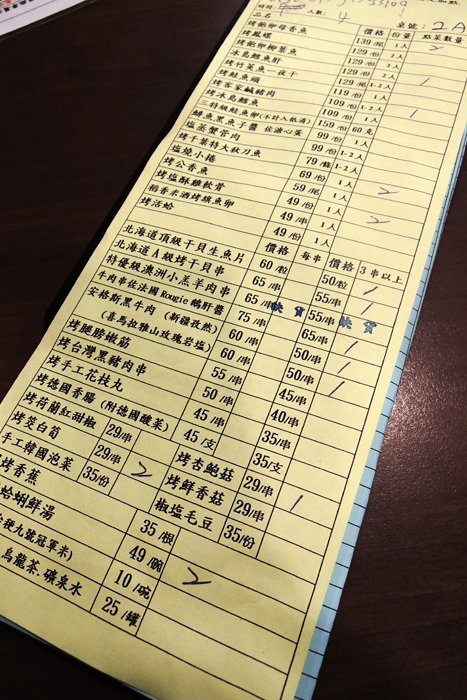 人數: 4 桌號: 2A
品名 價格 份量 點菜數量
烤飽卵母香魚 139/尾 1人 2
烤鳳螺 129/份 2人
烤飽卵柳葉魚 129/份 2人
冰島鱈魚肝 129/份 1人
烤竹莢魚一夜干 119/尾 1-2人 1
烤鮭魚頭 119/份 1人
烤客家鹹豬肉 109/份 1-2人
烤冰島鱈魚 109/份 1人 1
三特級鮭魚卵(不計入低消) 159/份 60克
鱘魚黑魚子醬 佐溏心蛋 99/份 1人
塩蒸蟹管肉 99/份 1-2人
烤千葉特大秋刀魚 79/條 1-2人
塩燒小捲 69/份 1人
烤公香魚 59/尾 1人 2
烤塩酥雞軟骨 49/份 1人
稻香米酒烤旗魚卵 49/串 1人 2
烤活蛤 49/份 1人
價格 每串 價格 3串以上
北海道頂級干貝生魚片 60/粒 50粒
北海道A級烤干貝串 65/串 55/串 1
特優級澳洲小羔羊肉串 65/串 缺貨 55/串 缺貨
牛肉串佐法國Rougie鵝肝醬 75/串 65/串 1
安格斯黑牛肉 (新疆孜然) 60/串 50/串 1
(喜馬拉雅山玫瑰岩塩) 60/串 50/串 1
烤腿膀嫩筋 55/串 45/串
烤台灣黑豬肉串 50/串 40/串
烤手工花枝丸 45/串 35/串
烤德國香腸 (附德國酸菜) 45/支 35/支
烤荷蘭紅甜椒 29/串 烤杏鮑菇 29/串
烤筊白筍 29/串 烤鮮香菇 29/串 1
手工韓國泡菜 35/份 2 椒塩毛豆 35/份
烤香蕉 35/根
蛤蜊鮮湯 49/碗 2
梗九號冠軍米) 10/碗
烏龍茶.礦泉水 25/罐